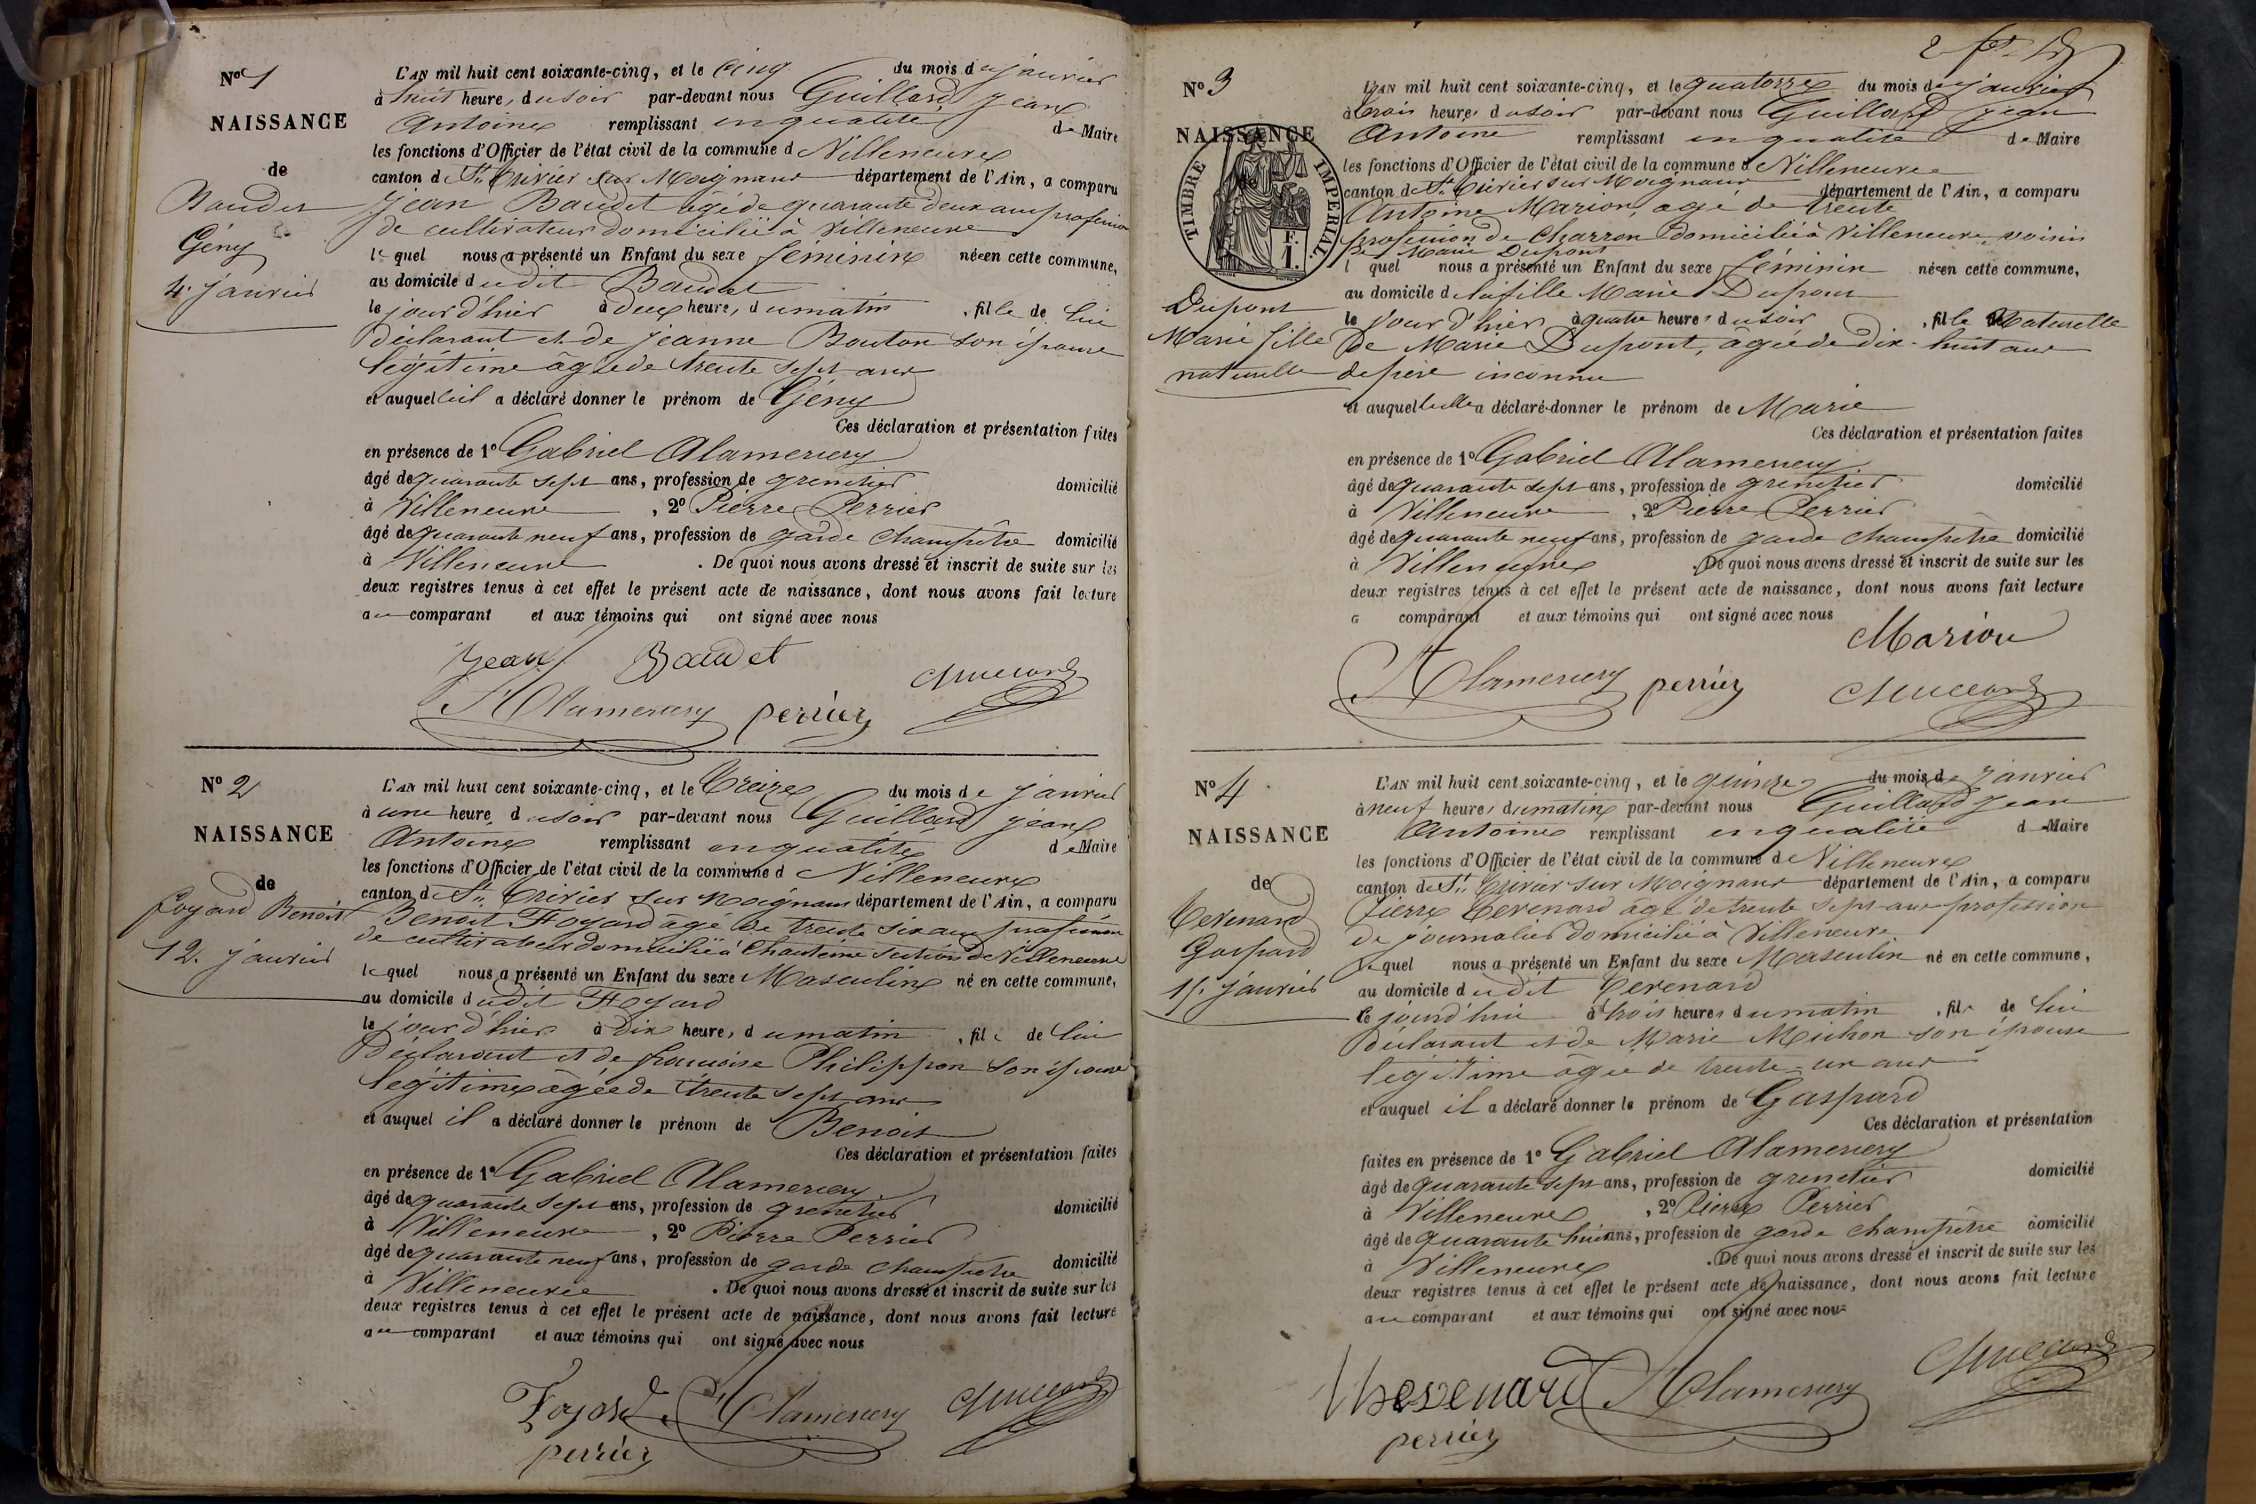 Nº 1
NAISSANCE
de
Baudet
Gény
4. janvier
L'AN mil huit cent soixante-cinq, et le cinq du mois de janvier
à huit heure, du soir par-devant nous Guillard jean
Antoine remplissant en qualité de Maire
les fonctions d'Officier de l'état civil de la commune d Villeneuve
canton de St. Trivier sur Moignans département de l'Ain, a comparu
jean Baudet âgé de quarante deux ans profession
de cultivateur domicilié à Villeneuve
lequel nous a présenté un Enfant du sexe féminin née en cette commune,
au domicile dudit Baudet
le jour d'hier à deux heure, du matin , fille de lui
déclarant et de jeanne Bouton son épouse
légitime âgée de trente sept ans
et auquel il a déclaré donner le prénom de Gény
Ces déclaration et présentation faites
en présence de 1º Gabriel Alamercery
âgé de quarante sept ans, profession de grenetier domicilié
à Villeneuve , 2º Pierre Perrier
âgé de quarante neuf ans, profession de garde champêtre domicilié
à Villeneuve . De quoi nous avons dressé et inscrit de suite sur les
deux registres tenus à cet effet le présent acte de naissance, dont nous avons fait lecture
au comparant et aux témoins qui ont signé avec nous
Jean Baudet
Alamercery perrier
Nº 2
NAISSANCE
de
foyard Benoit
12. janvier
L'AN mil huit cent soixante-cinq, et le treize du mois de janvier
à une heure du soir par-devant nous Guillard jean
Antoine remplissant en qualité de Maire
les fonctions d'Officier de l'état civil de la commune d Villeneuve
canton de St. Trivier sur Moignans département de l'Ain, a comparu
Benoit Foyard âgé de trente six ans profession
de cultivateur domicilié à Chanteins section de Villeneuve
lequel nous a présenté un Enfant du sexe Masculin né en cette commune,
au domicile dudit Foyard
le jour d'hier à dix heure, du matin , fils de lui
déclarant et de françoise Philippon son épouse
légitime âgée de trente sept ans
et auquel il a déclaré donner le prénom de Benoit
Ces déclaration et présentation faites
en présence de 1º Gabriel Alamercery
âgé de quarante sept ans, profession de grenetier domicilié
à Villeneuve , 2º Pierre Perrier
âgé de quarante neuf ans, profession de garde champêtre domicilié
à Villeneuve . De quoi nous avons dressé et inscrit de suite sur les
deux registres tenus à cet effet le présent acte de naissance, dont nous avons fait lecture
au comparant et aux témoins qui ont signé avec nous
Foyard Alamercery
perrier
Nº 3
NAISSANCE
TIMBRE IMPERIAL
F.
1.
Dupont
Marie fille
naturelle
L'AN mil huit cent soixante-cinq, et le quatorze du mois de janvier
à trois heures du soir par-devant nous Guillard jean
Antoine remplissant en qualité de Maire
les fonctions d'Officier de l'état civil de la commune de Villeneuve
canton de St. Trivier sur Moignans département de l'Ain, a comparu
Antoine Marion, âgé de trente
profession de charron domicilié à Villeneuve, voisin
de Marie Dupont
l quel nous a présenté un Enfant du sexe féminin née en cette commune,
au domicile de la fille Marie Dupont
le jour d'hier à quatre heures du soir , fille Naturelle
de Marie Dupont, âgée de dix-huit ans
de père inconnu
et auquel a déclaré donner le prénom de Marie
Ces déclaration et présentation faites
en présence de 1º Gabriel Alamercery
âgé de quarante sept ans, profession de grenetier domicilié
à Villeneuve , 2º Pierre Perrier
âgé de quarante neuf ans, profession de garde champêtre domicilié
à Villeneuve . De quoi nous avons dressé et inscrit de suite sur les
deux registres tenus à cet effet le présent acte de naissance, dont nous avons fait lecture
a comparant et aux témoins qui ont signé avec nous
Marion
Alamercery perrier
Nº 4
NAISSANCE
de
Tevenard
Gaspard
15. janvier
L'AN mil huit cent soixante-cinq, et le quinze du mois de janvier
à neuf heures du matin par-devant nous Guillard jean
Antoine remplissant en qualité de Maire
les fonctions d'Officier de l'état civil de la commune de Villeneuve
canton de St. Trivier sur Moignans département de l'Ain, a comparu
Pierre Tevenard âgé de trente sept ans profession
de journalier domicilié à Villeneuve
lequel nous a présenté un Enfant du sexe Masculin né en cette commune,
au domicile dudit Tevenard
ce jourd'hui à trois heures du matin , fils de lui
déclarant et de Marie Michon son épouse
légitime âgée de trente-un ans
et auquel il a déclaré donner le prénom de Gaspard
Ces déclaration et présentation
faites en présence de 1º Gabriel Alamercery
âgé de quarante sept ans, profession de grenetier domicilié
à Villeneuve , 2º Pierre Perrier
âgé de quarante huit ans, profession de garde champêtre domicilié
à Villeneuve . De quoi nous avons dressé et inscrit de suite sur les
deux registres tenus à cet effet le présent acte de naissance, dont nous avons fait lecture
au comparant et aux témoins qui ont signé avec nous
Thevenard Alamercery
perrier